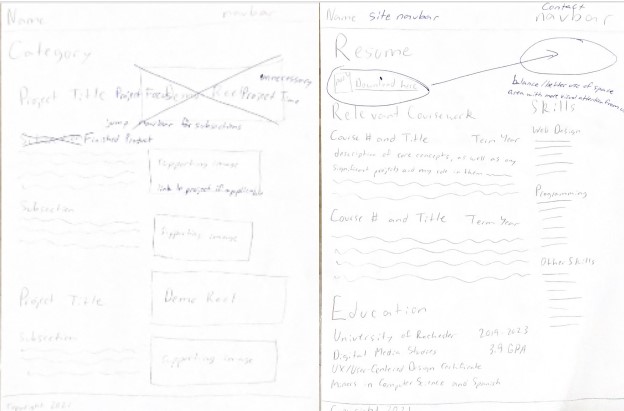 Name navbar
Category
unnecessary
Project Title Project Focus Project Time
jump navbar for subsections
Finished Project
Supporting image
link to project if applicable
Subsection
Supporting image
Project Title Demo Reel
Subsection
Supporting image
Copyright 2021
Contact
Name site navbar navbar
Resume
Download here
balance/better use of space
Relevant Coursework Skills
Course # and Title Term Year
Web Design
description of core concepts, as well as any
significant projects and my role in them
Programming
Course # and Title Term Year
Other Skills
Education
University of Rochester 2019-2023
Digital Media Studies 3.9 GPA
UX/User-Centered Design Certificate
Minors in Computer Science and Spanish
Copyright 2021